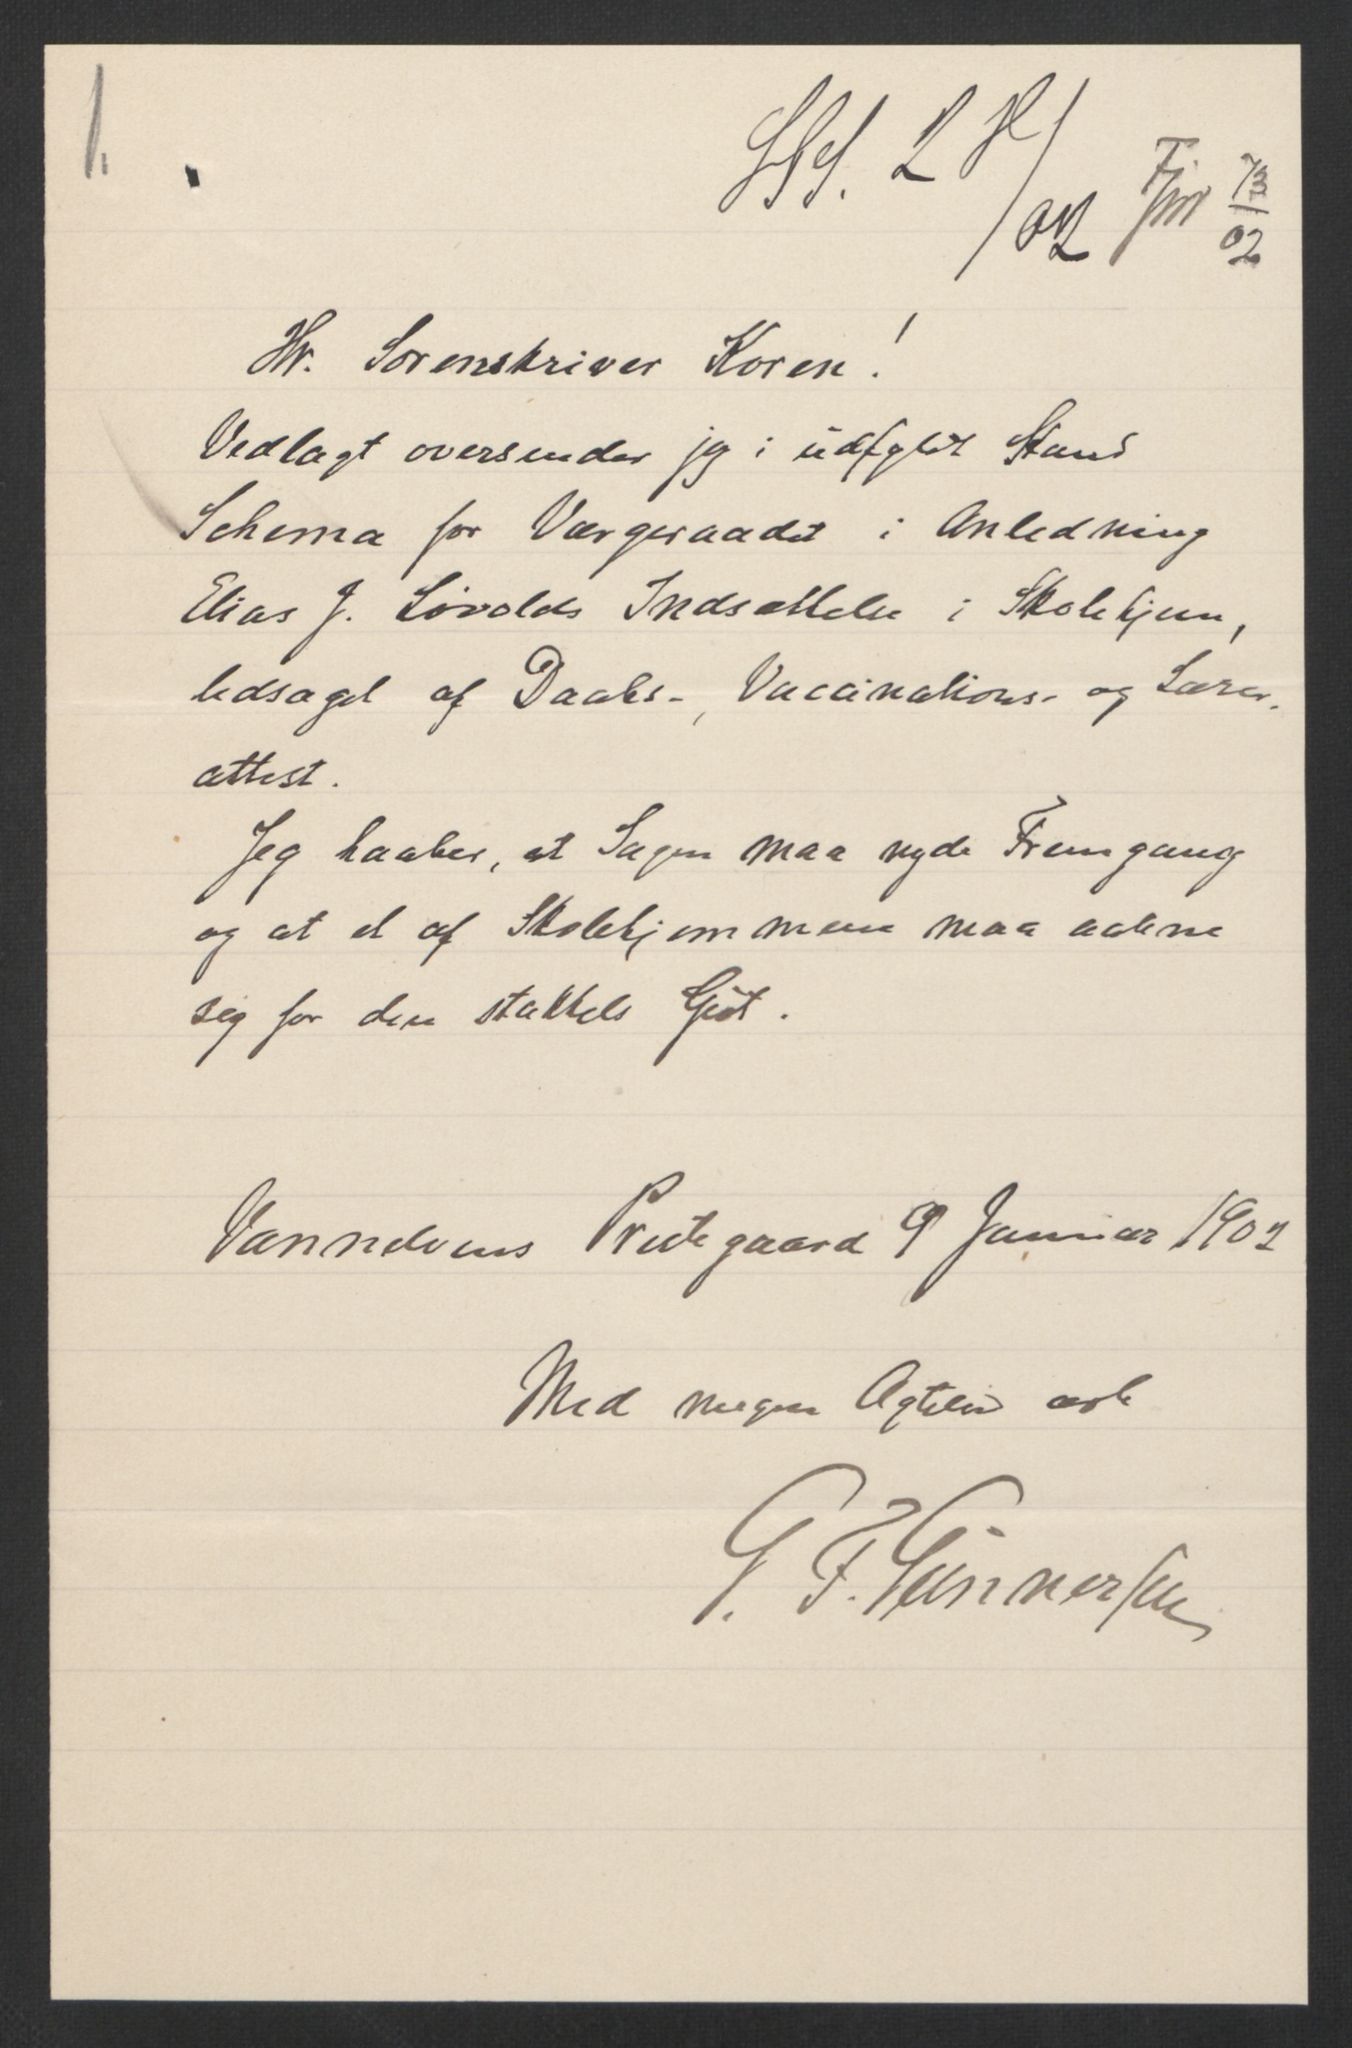 1.
02
02
Hr. Sorenskriver Koren!
Vedlagt oversender jeg i udfyldt Stand
Schema for Værgeraadet i Anledning
Elias J. Løvolds Indsættelse i Skolehjem,
ledsaget af Daabs-, Vaccinations- og Lærer-
attest.
Jeg haaber, at Sagen maa nyde Fremgang
og at et af Skolehjemmene maa aabne
sig for den stakkels Gut.
Vannelvens Prestegaard 9 Januar 1902
Med megen Agtelse ærb
G. F. Gunnersen